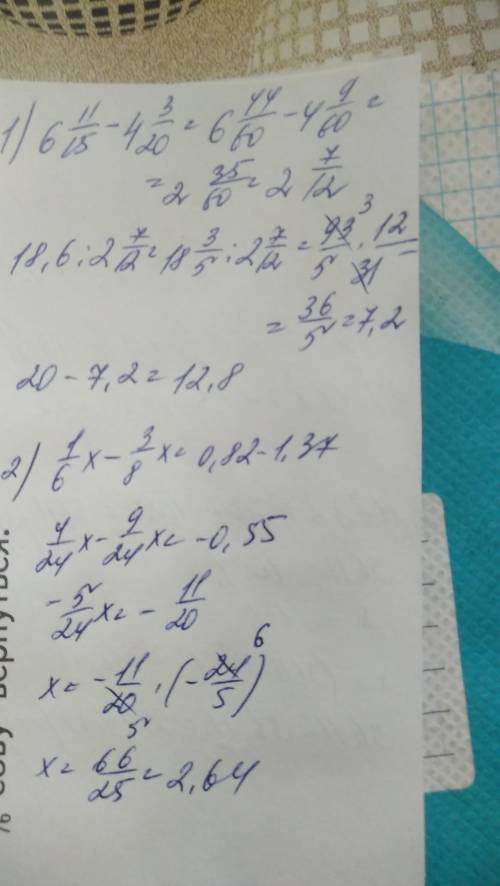 1) 6 11/15 - 4 3/20 = 6 44/60 - 4 9/60 =
= 2 35/60 = 2 7/12
18,6 : 2 7/12 = 18 3/5 : 2 7/12 = 93/5 3 · 12/31 =
= 36/5 = 7,2
20 - 7,2 = 12,8
2) 1/6 x - 3/8 x = 0,82 - 1,37
4/24 x - 9/24 x = - 0,55
- 5/24 x = - 11/20
x = - 11/20 5 · (- 24/5) 6
x = 66/25 = 2,64
вернуться.